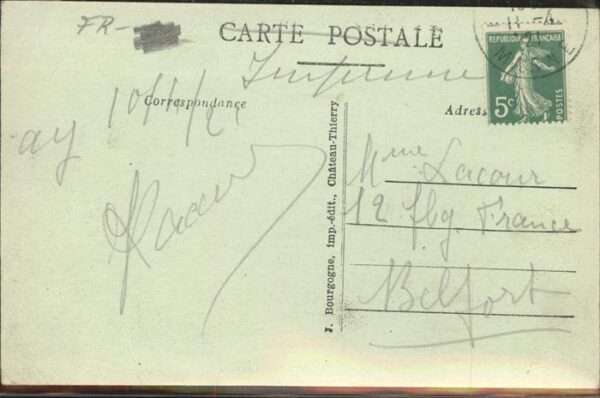 FR-
CARTE POSTALE
Imprimé
Correspondance
Adresse
ay 10/1/21
Lacour
J. Bourgogne, imp.-édit., Château-Thierry
REPUBLIQUE FRANÇAISE
5c
POSTES
Mme Lacour
12 fbg France
Belfort